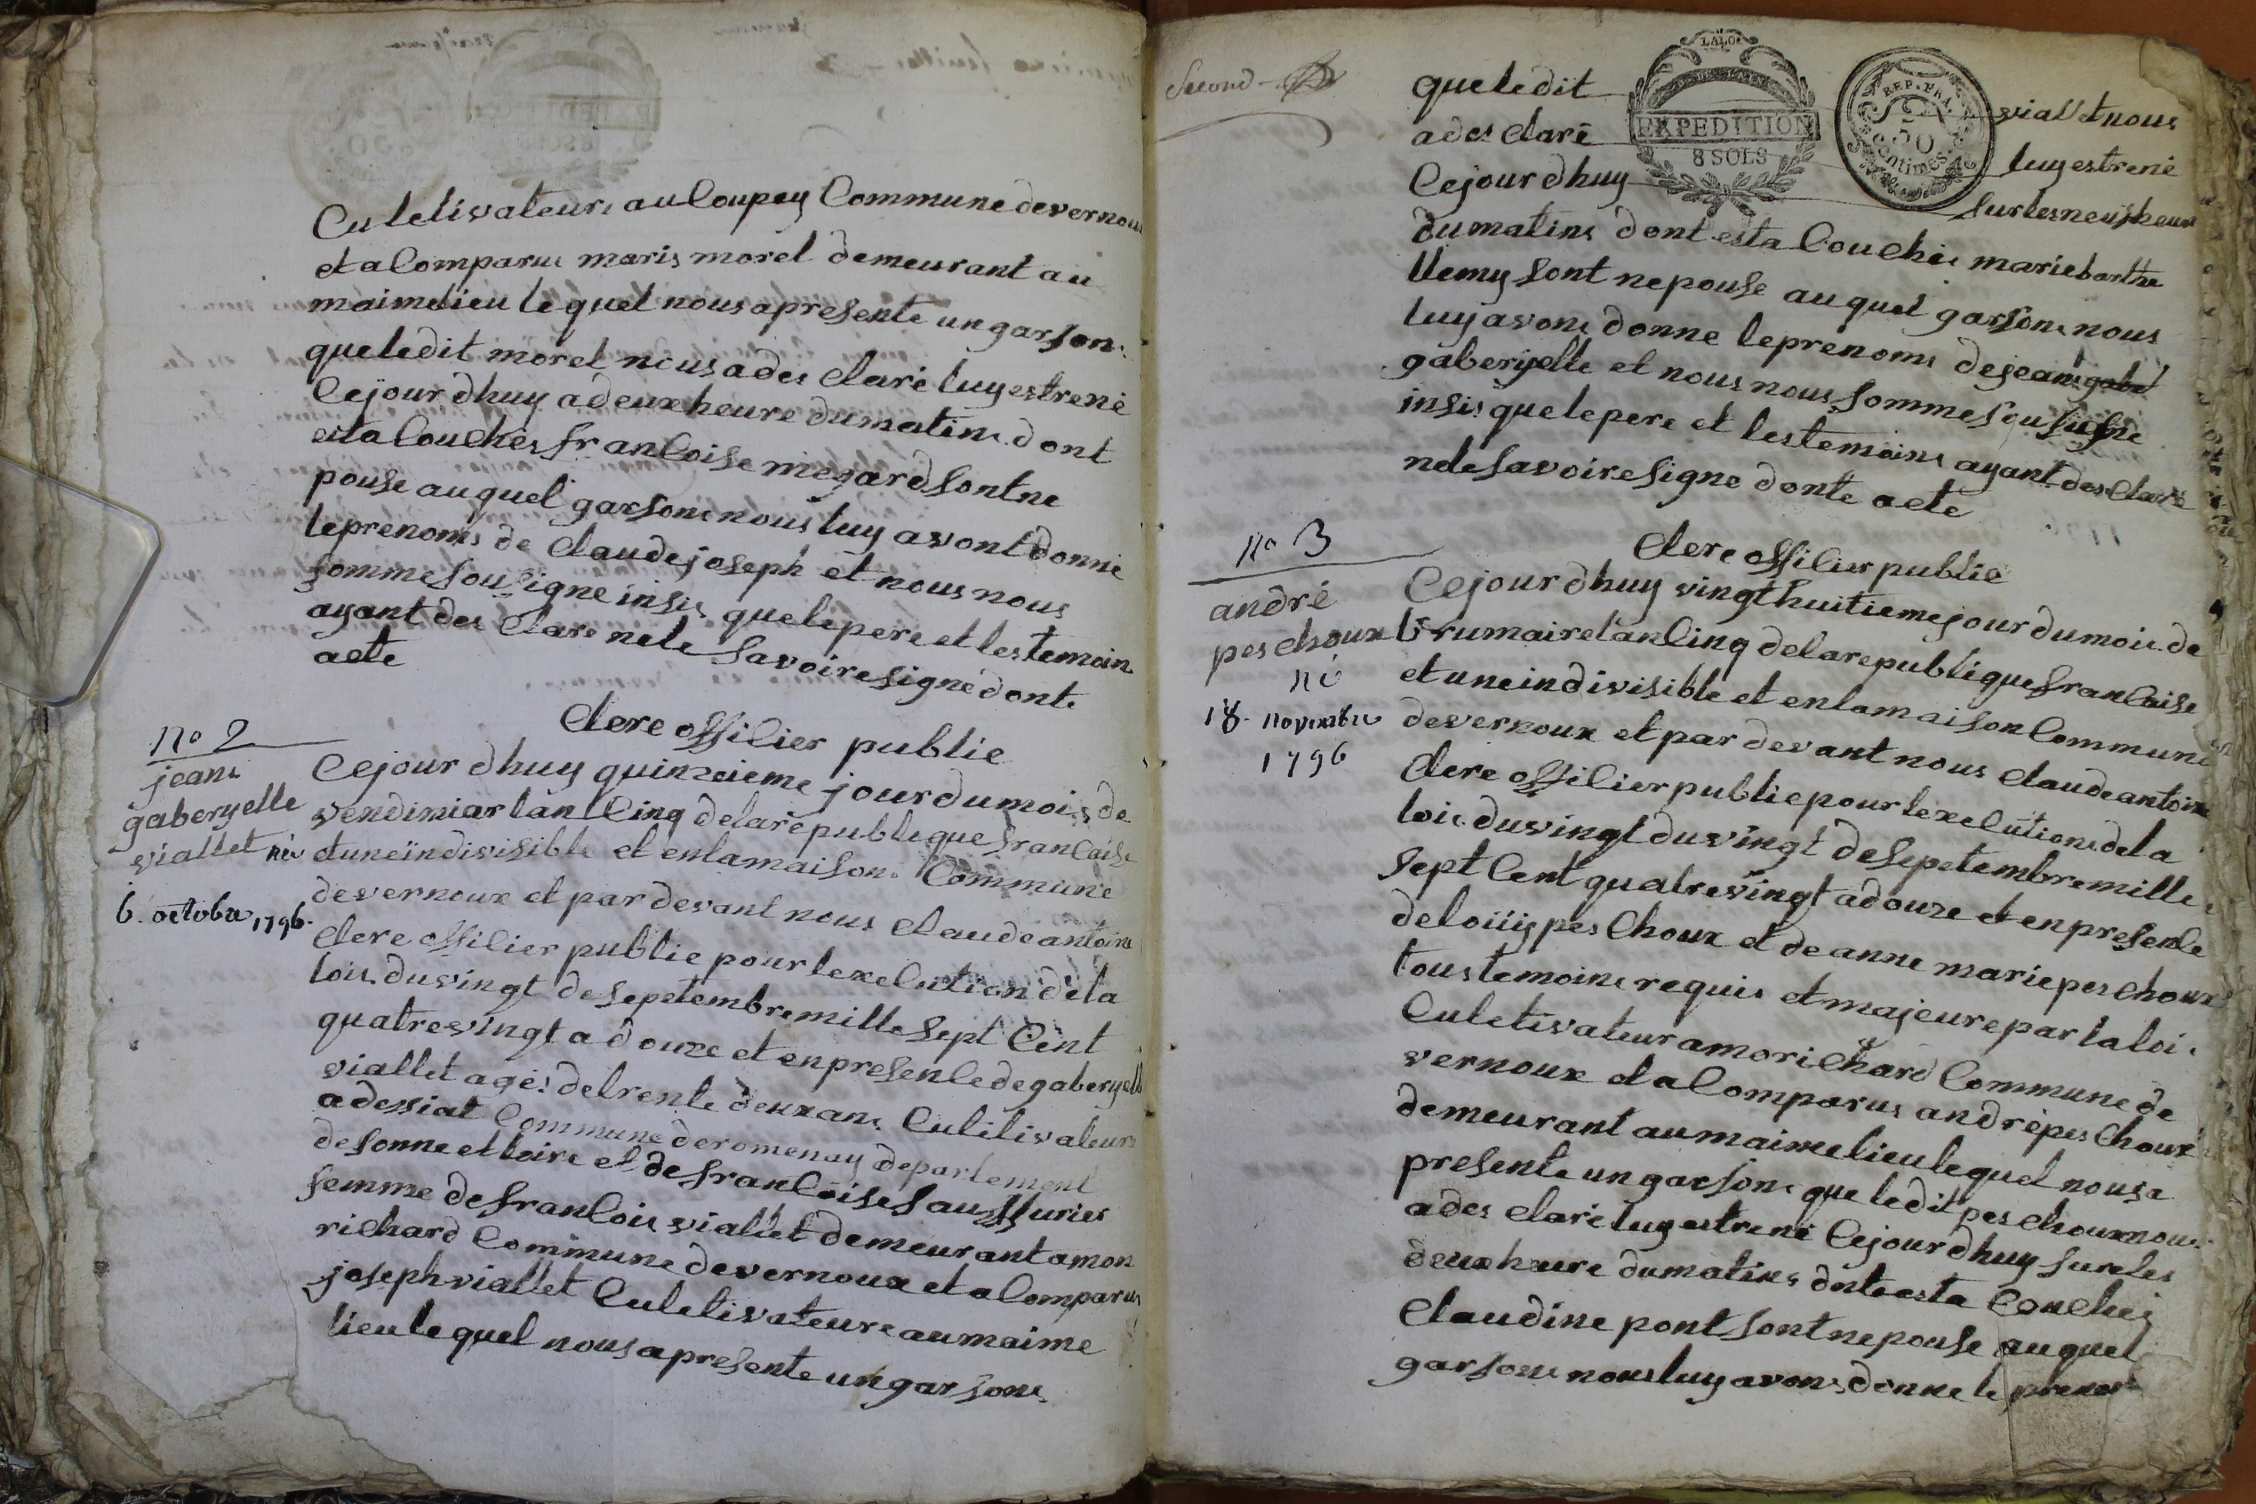 Culetivateurs au Coupey Commune de vernoux
et a Comparue maris morel demeurant au
maime lieu le quel nous apresente un garson
que ledit morel nous a des Claré luy estre né
Cejour dhuy a deux heure du matins dont
est a Couchés franCoise megard sont ne
pouse au quel garsons nous luy avont donné
le prenoms de Claude joseph et nous nous
somme sousigné insis que le pere et les temoin
ayant des Claré ne le savoire signé donte
acte
Clere offiCier publie
no 2
jeans
gaberyelle
viallet né
6. octobre 1796.
Cejour dhuy quinzieme jour du mois de
vendimiar lan Cinq de la republique franCaise
et une indivisible et en la maison Commune
de vernoux et par devant nous Claude antoine
Clere offiCier publie pour lexeCution de la
lois du vingt de sepetembre mille sept Cent
quatre vingt a douze et en presenCe de gaberyelle
viallet agés de trente deux ans Culitivateurs
a dessiat Commune de romenay departement
de sonne et loire et de franCoise
femme de franCois viallet demeurant a mon
richard Commune de vernoux et a Comparus
joseph viallet Culetivateure au maime
lieu le quel nous apresente un garsons
Second
que ledit viallet nous
a des Claré luy estre né
Cejour dhuy sur les neuf heure
du matins dont est a Couchée marie barthe
llemy sont ne pouse au quel garsons nous
luy avons donne le prenoms de jeans
gaberyelle et nous nous somme sousigne
insis que le pere et les temoins ayant des Claré
ne le savoire signe donte acte
LALOI
EXPEDITION
8 SOLS
REP. FRA.
50
Centimes
Clere offiCier publie
no 3
andré
pes Choux
né
18. novembre
1796
Cejour dhuy vingt huitieme jour du mois de
brumaire lan Cinq de la republique franCaise
et une indivisible et en la maison Commune
de vernoux et par devant nous Claude antoine
Clere offiCier publie pour lexeCutions de la
lois du vingt du vingt de sepetembre mille
sept Cent quatre vingt a douze et en presenCe
de loüis pes Choux et de anne marie pes Choux
tous temoins requis et majeure par la loi
Culetivateur a morichard Commune de
vernoux et a Comparus andré pes Choux
demeurant au maime lieu le quel nous a
presente un garsons que ledit pes Choux nous
a des Claré luy estre né Cejour dhuy sur les
deux heure du matins donte est a Couchés
Claudine pont sont ne pouse au quel
garsons nous luy avons donne le prenoms